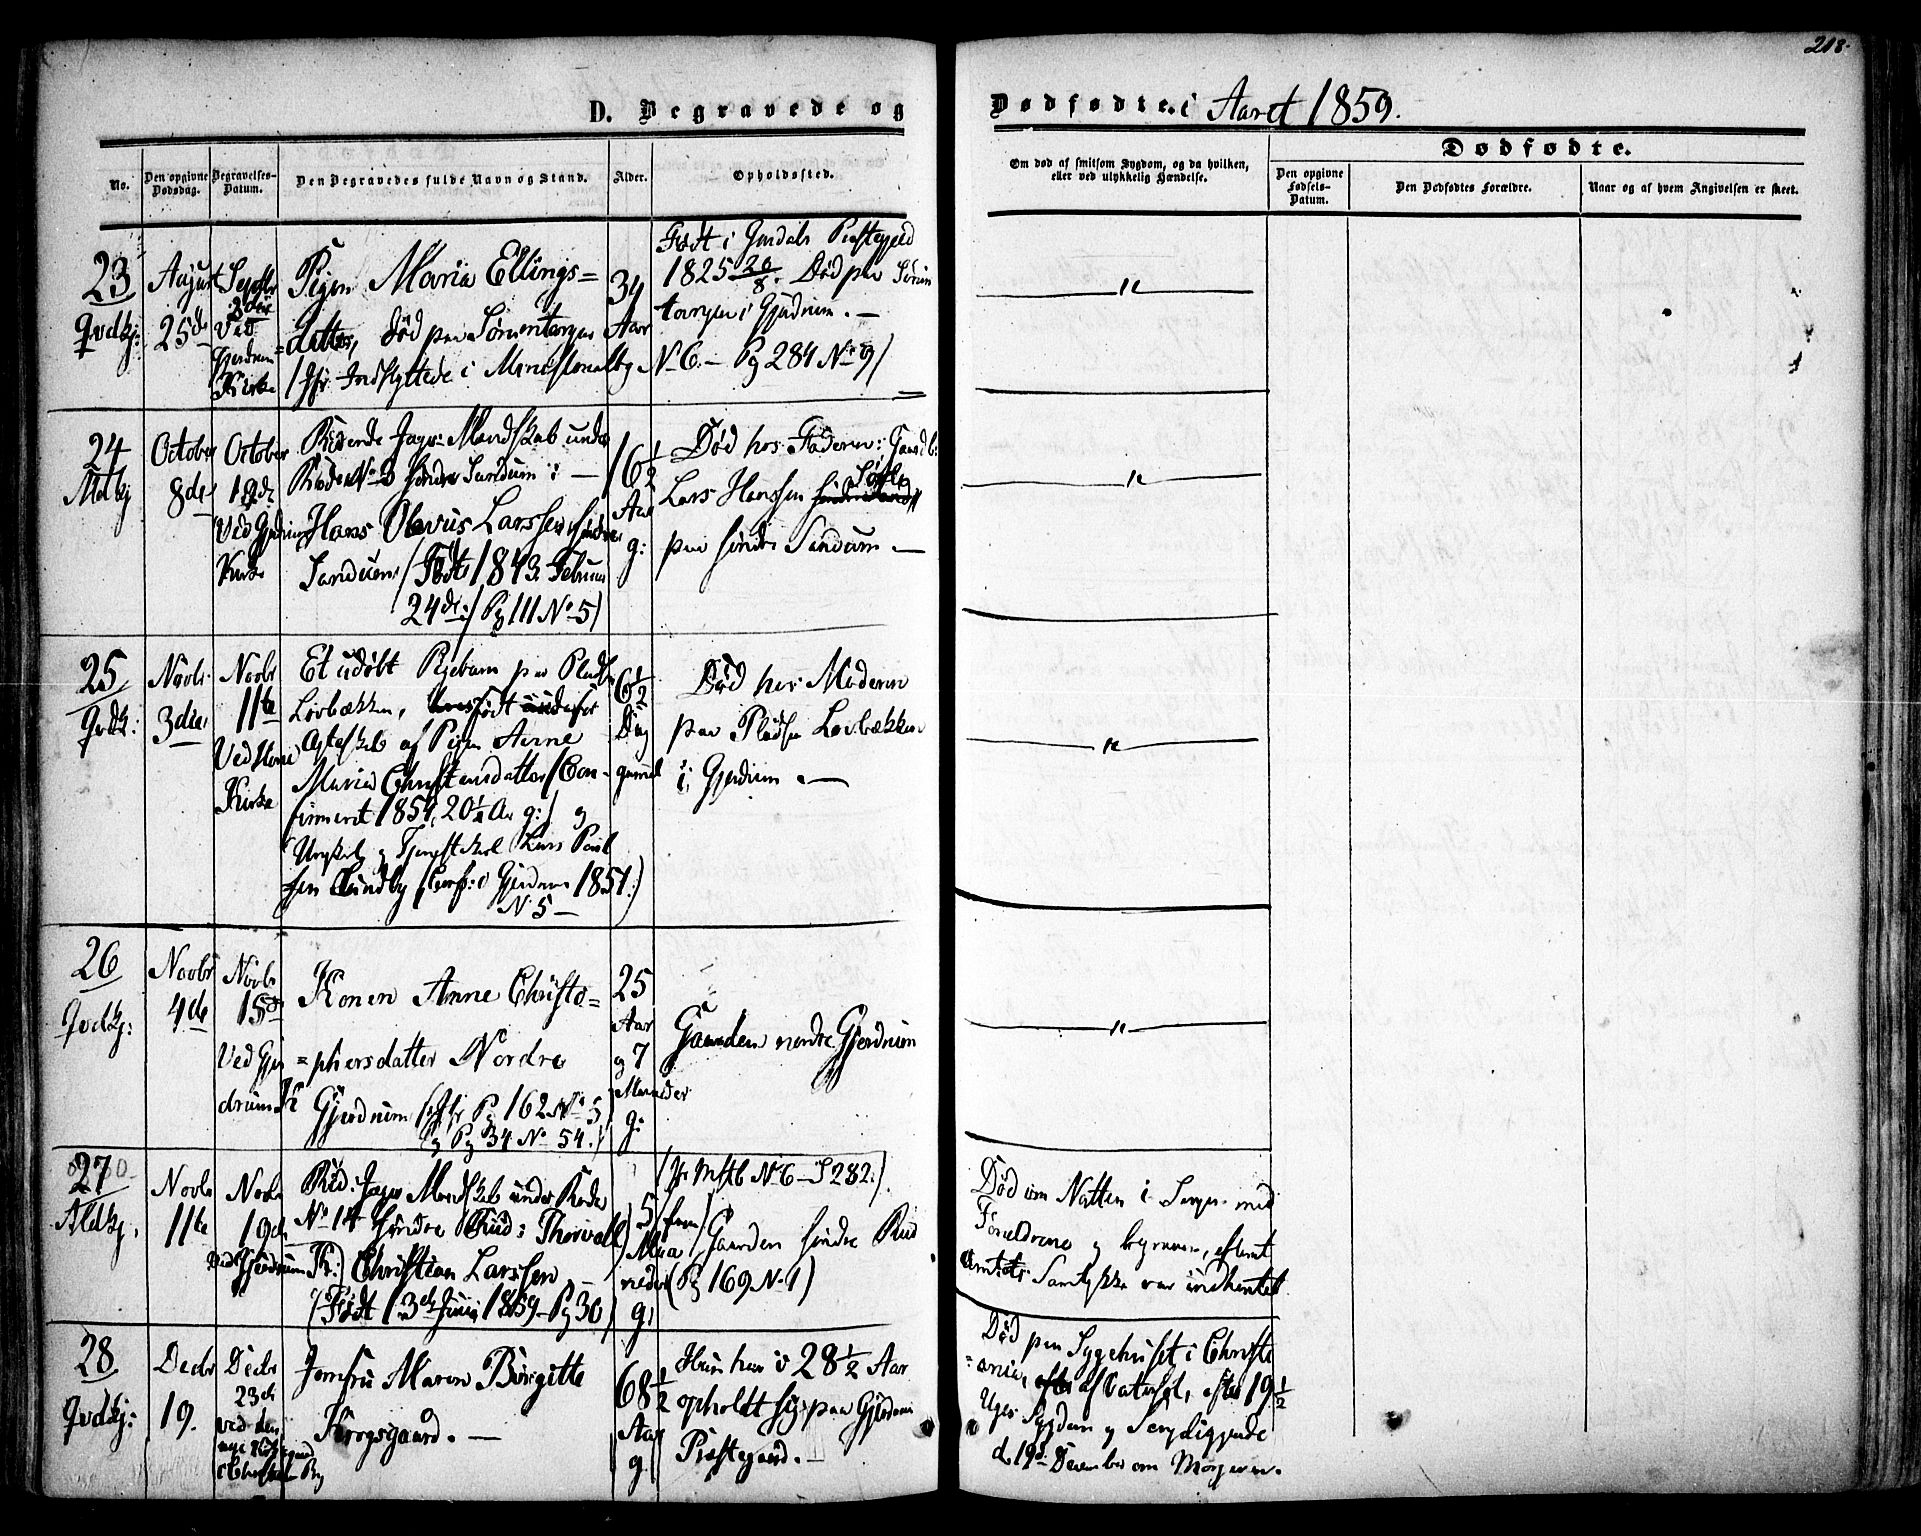 218.
D. Begravede og
Dødfødte. i Aaret 1859.
No.
Den opgivne Dødsdag.
Begravelses-Datum.
Den Begravedes fulde Navn og Stand.
Alder.
Opholdssted.
Om død af smitsom Sygdom, og da hvilken,
eller ved ulykkelig Hændelse.
Dødfødte.
Den opgivne Fødsels-Datum.
Den Dødfødtes Forældre.
Naar og af hvem Angivelsen er skeet.
23
Qvdkj:
August
25de
Septbr
3die
Ved
Gjerdrum
Kirke
Pigen Maria Ellings=
datter, død paa
/Jfr. Indflyttede i Ministerialbog
34
Aar
Født i Præstegjeld
1825 20/8. Død paa
i Gjerdrum. —
No 6. — Pg 284 No 9/
24
Mdkj
October
8de
October
19de
Ved Gjerdrum
Kirke
Reserve Jæger Mandskab under
Rode No 3 søndre Sandum i —
Hans Olavus Larssen søndre
Sandum /Født 1843 Februar
24de/ Pg 111 No 5/
16 1/2
Aar
g:
Død hos Faderen: Gaardb:
Lars Hanssen
paa søndre Sandum —
25
Qvdk:
Novbr.
3die
Novbr
11te
Ved
Kirke
Et udøbt Pigebarn paa Pladsen
Lovbækken, født udenfor
Ægteskab af Pigen Anne
Maria Christensdatter /Con-
firmeret 1854, 20 1/4 Aar g:/ og
Ungkarl og Tjenestekarl Lars Paul
sen Sundby /Conf: i Gjerdrum 1851:/
No 5 —
6 1/2
Dag
gammel
Død hos Moderen
paa Pladsen Lovbækken
i Gjerdrum. —
26
Qvdkj:
Novbr
4de
Novbr
15de
Ved Gjer
drum K
Konen Anne Christo=
=phersdatter Nordre
Gjerdrum /Jfr Pg 162 No 5
og Pg 34 No 54./
25
Aar
og 7
Maaneder
g:
Gaarden nordre Gjerdrum
27
Mdkj.
Novbr
11te
Novbr
19de
Ved Gjerdrum K:
Res: Jæger Mandskab under Rode
No 14 søndre Rud: Thorvald
Christian Larssen —
/Født 13de Juni 1859 — Pg 30/
5
Maa
neder
g:
/Jfr Mstb No 6 — S 282:/
Gaarden søndre Rud
(Pg 169 No 1)
Død om Natten i Seng med
Forældrene og begraven, efterat
Amtets Samtykke var indhentet
28
Qvdkj:
Decbr
19.
Decbr
23de
ved den
nye
Jomfru Maren Birgitte
Krogsgaard. —
68 1/2
Aar
g
Hun har i 28 1/2 Aar
opholdt sig paa Gjerdrum
Præstegaard. —
Død paa Sygehuset i Christi
=ania, af Vatersot, efter 19 1/2
Uger Sygdom og Sengeliggende
d. 19de December om Morgenen.